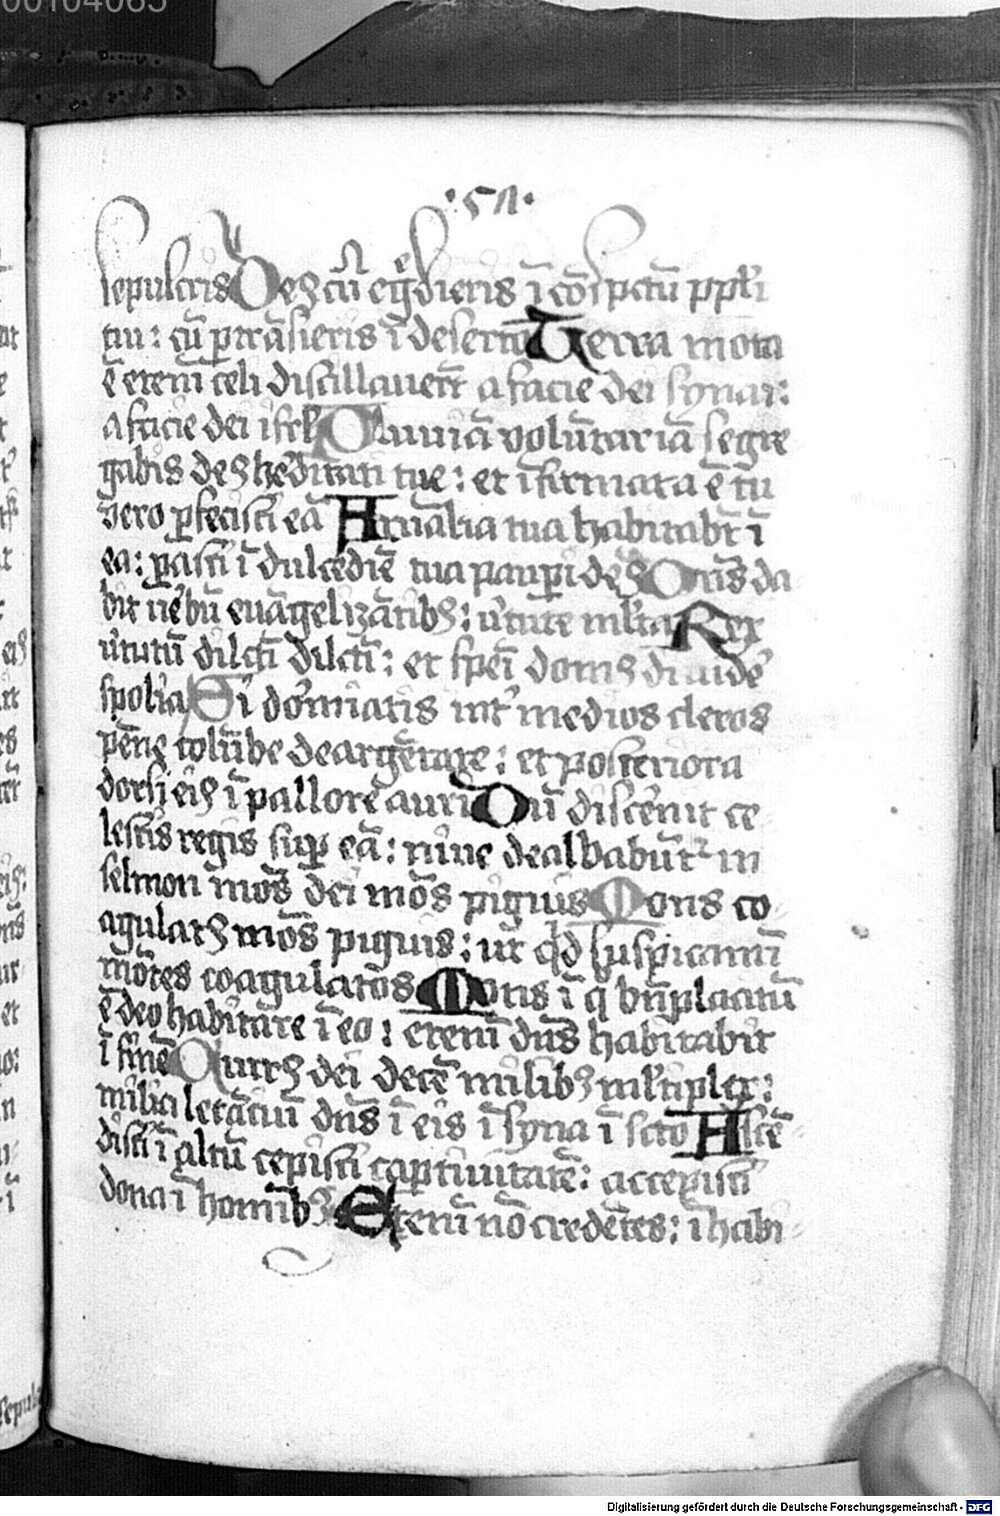 00104065
·51·
sepulcris Deꝰ cū eg̃dieris ī cōspctū ppłi
tui: cū ꝑtrāsieris ī deserto Terra mota
ē eteni celi distillauert̄ a facie dei synai:
a facie dei isrł Pluuiā volūtariā segre
gabis deꝰ hẽditati tue: et īfirmata ē tu
vero ꝑfecisti eā Aīalia tua habitabt̄ ī
ea: ꝑasti ī dulcediē tua pauꝑi deꝰ Dns̄ da
bit ūebū euāgelizātibꝰ: ūtute mł̄ta Rex
ūtutū dilcti dilcti: et spēi domꝰ diuidẽ
spolia Si dormiatis int̃ medios cleros
pēne colūbe deargētate: et posteriora
dorsi eiꝰ ī pallore auri Dū discernit ce
lestis regis suꝑ eā: niue dealbabūt in
selmon mōs dei mōs piguis Mons co
agulatꝰ mōs piguis: ut qd suspicamī
mōtes coagulatos Mons ī q bn̄placitū
ē deo habitare ī eo: eteni dn̄s habitabit
ī finē Currꝰ dei decē milibꝰ mł̄tiplex:
milia letātiū dn̄s ī eis ī syna ī scto Ascē
disti ī altū cepisti captiuitatē: accepisti
dona ī homibꝰ Eteni nō credētes: īhabi
sepul
Digitalisierung gefördert durch die Deutsche Forschungsgemeinschaft - DFG